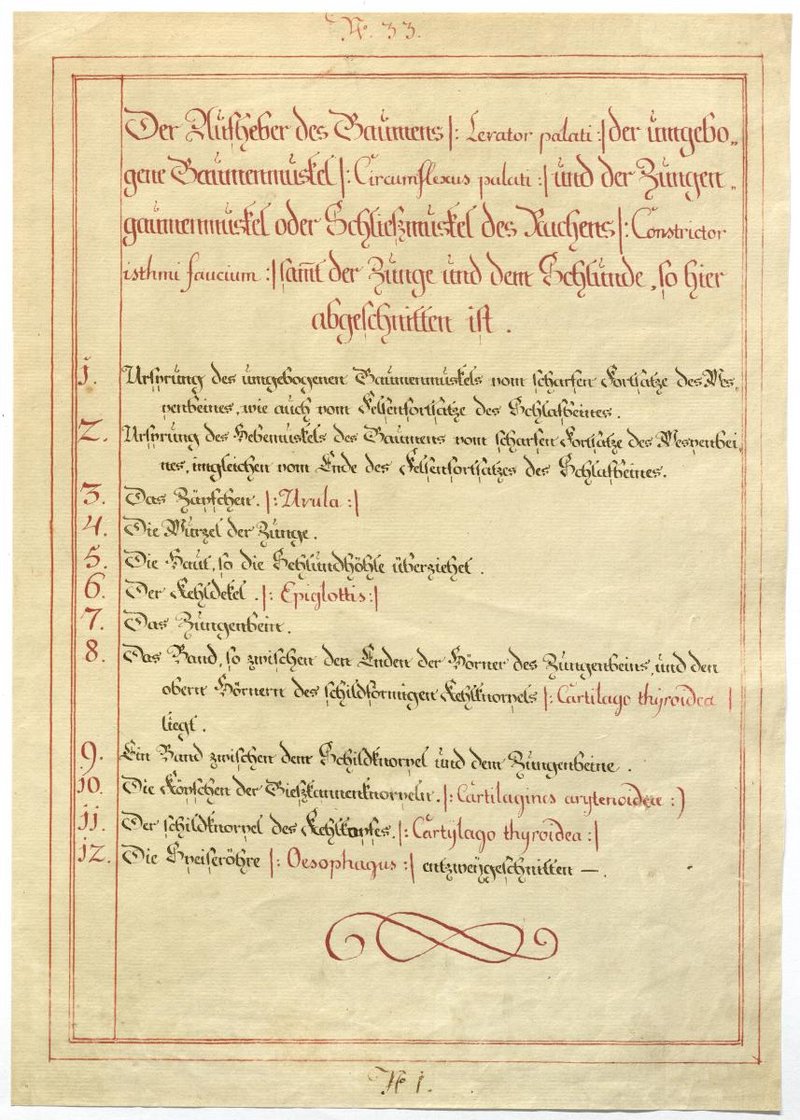 No. 33.
Der Aufheber des Gaumens |: Levator palati :| der umgebo„
gene Gaumenmuskel |: Circumflexus palati :| und der Zungen„
gaumenmuskel oder Schließmuskel des Rachens |: Constrictor
isthmi faucium :| sam̅t der Zunge und dem Schlunde, so hier
abgeschnitten ist.
1. Ursprung des umgebogenen Gaumenmuskels vom scharfen Fortsatze des Wes„
penbeines, wie auch vom Felsenfortsatze des Schlafbeines.
2. Ursprung des Hebemuskels des Gaumens vom scharfen Fortsatze des Wespenbei„
nes, imgleichen vom Ende des Felsenfortsatzes des Schlafbeines.
3. Das Zäpfchen. |: Uvula :|
4. Die Wurzel der Zunge.
5. Die Haut, so die Schlundhöhle überziehet.
6. Der Kehldekel. |: Epiglottis :|
7. Das Zungenbein.
8. Das Band, so zwischen den Enden der Hörner des Zungenbeins, und den
obern Hörnern des schildförmigen Kehlknorpels |: Cartilago thyroidea |
liegt.
9. Ein Band zwischen dem Schildknorpel und dem Zungenbeine.
10. Die Köpfchen der Gieszkannenknorpeln. |: Cartilagines arytenoideæ :)
11. Der schildknorpel des Kehlkopfes. |: Cartylago thyroidea :|
12. Die Speiseröhre |: Oesophagus :| entzweygeschnitten —.
No 1.